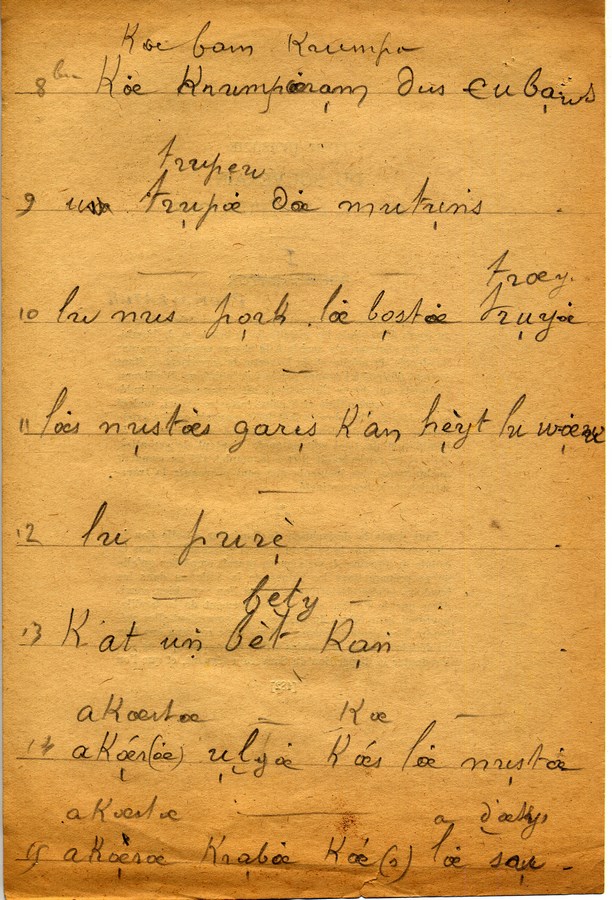 Kœ bam Krumpœ
8 bis Kœ Krumpœram dus cu bans
trupeu
9 un trupœ dœ mutuns
trœy
10 lu nus pork. lœ bostœ truyœ
11 lœs nustœs garis K'an hèyt lu
12 lu purè
bèty
13 K'at un bèt Kan
aKœstœ Kœ
14 aKœr(œ) ulyœ Kœs lœ nustœ
aKœstœ a
15 aKœrœ Krabœ Kœ(z) lœ sau